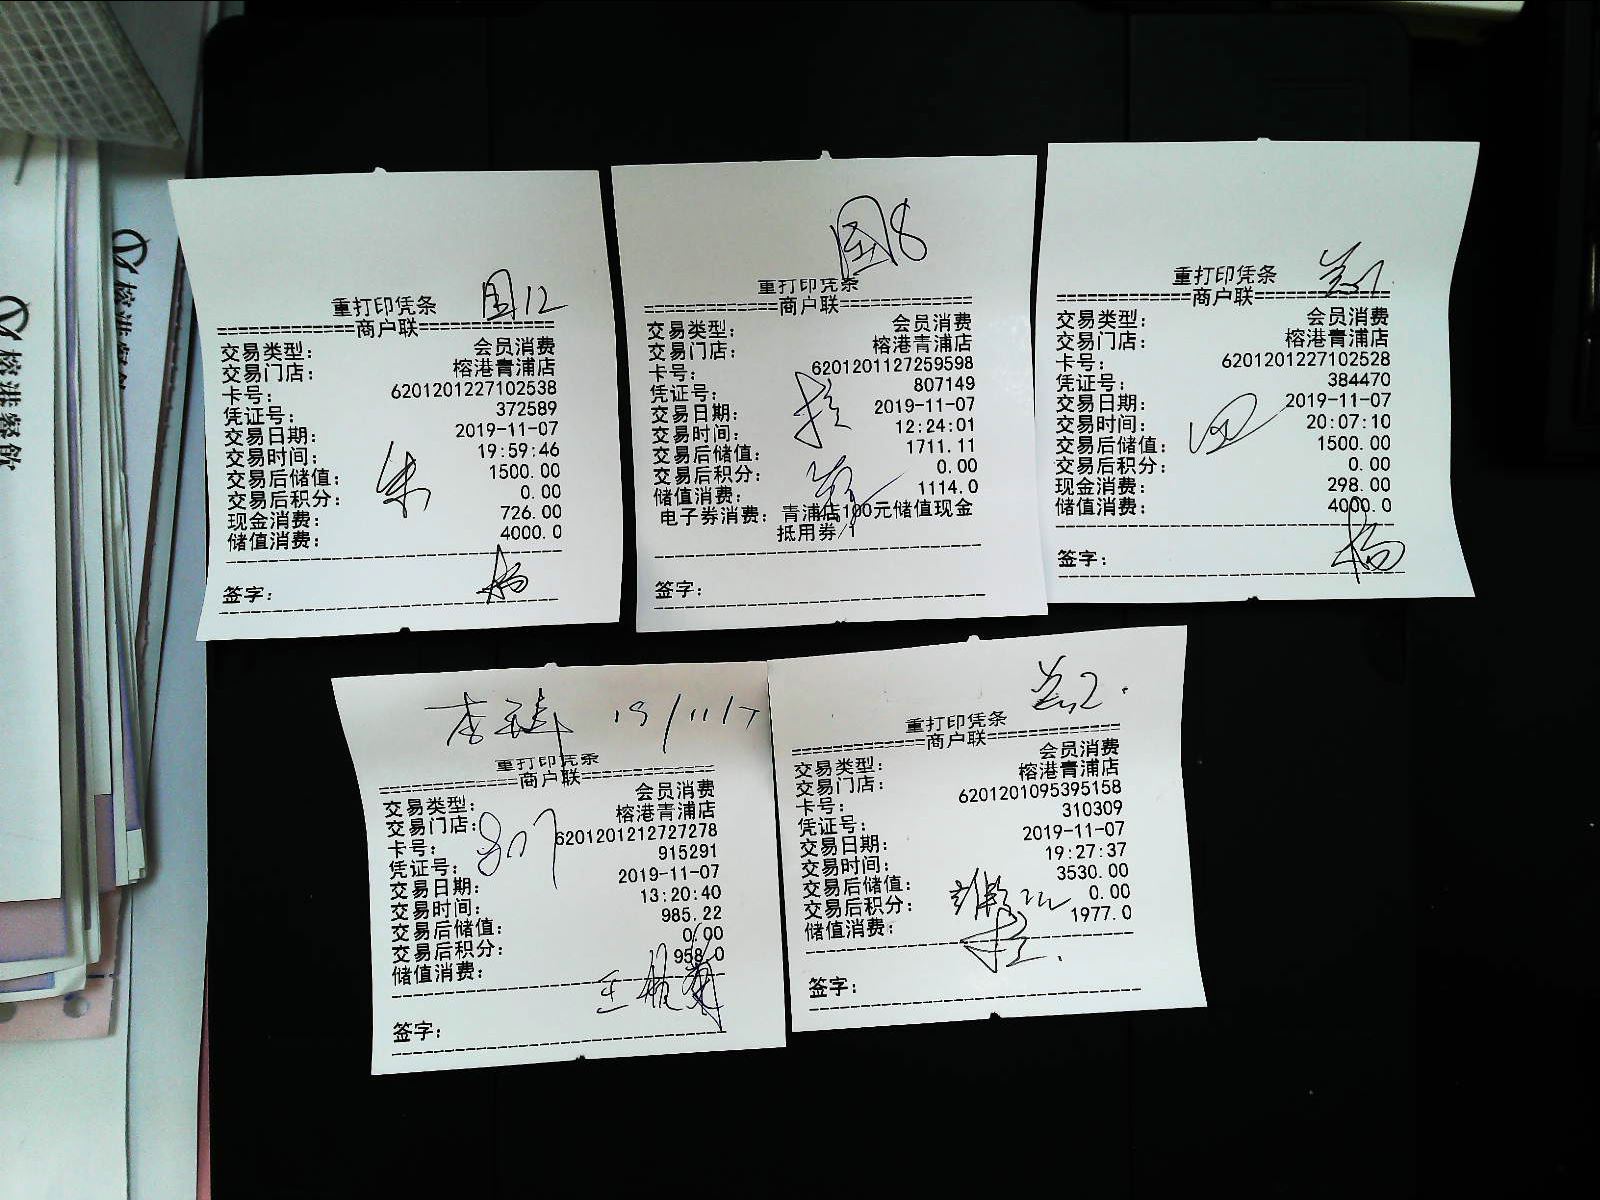 国12
重打印凭条
=============商户联=============
交易类型: 会员消费
交易门店: 榕港青浦店
卡号: 6201201227102538
凭证号: 372589
交易日期: 2019-11-07
交易时间: 19:59:46
交易后储值: 1500.00
交易后积分: 0.00
现金消费: 726.00
储值消费: 4000.0
朱
杨
签字:
国8
重打印凭条
=============商户联=============
交易类型: 会员消费
交易门店: 榕港青浦店
卡号: 6201201127259598
凭证号: 807149
交易日期: 2019-11-07
交易时间: 12:24:01
交易后储值: 1711.11
交易后积分: 0.00
储值消费: 1114.0
电子券消费: 青浦店100元储值现金
抵用券/1
签字:
重打印凭条
=============商户联=============
交易类型: 会员消费
交易门店: 榕港青浦店
卡号: 6201201227102528
凭证号: 384470
交易日期: 2019-11-07
交易时间: 20:07:10
交易后储值: 1500.00
交易后积分: 0.00
现金消费: 298.00
储值消费: 4000.0
杨
签字:
19/11/7
重打印凭条
=============商户联=============
交易类型: 会员消费
交易门店: 榕港青浦店
卡号: 6201201212727278
凭证号: 915291
交易日期: 2019-11-07
交易时间: 13:20:40
交易后储值: 985.22
交易后积分: 0.00
储值消费: 958.0
签字:
重打印凭条
=============商户联=============
交易类型: 会员消费
交易门店: 榕港青浦店
卡号: 6201201095395158
凭证号: 310309
交易日期: 2019-11-07
交易时间: 19:27:37
交易后储值: 3530.00
交易后积分: 0.00
储值消费: 1977.0
签字:
榕港餐飲